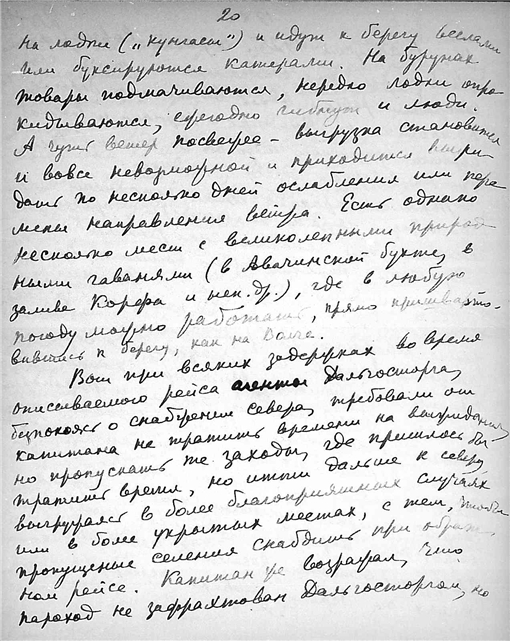 20
на лодки („кунгасы“) и идут к берегу веслами
или буксируются катерами. На бурунах
товары подмачиваются, нередко лодки опро-
кидываются, ежегодно гибнут и люди.
А чуть ветер посвежее – выгрузка становится
и вовсе невозможной и приходится выжи-
дать по несколько дней ослабления или пере-
мены направления ветра. Есть однако
несколько мест с великолепными природ-
ными гаванями (в Авачинской бухте, в
заливе Корфа и нек. др.), где в любую
погоду можно работать, прямо пришварто-
вавшись к берегу, как на Волге.
Вот при всяких задержках во время
описываемого рейса агенты Дальгосторга,
безпокоясь о снабжении севера, требовали от
капитана не тратить времени на выжидания,
но пропускать те заходы, где пришлось бы
тратить время, но итти дальше к северу,
выгружаясь в более благоприятных случаях
или в более укрытых местах, с тем, чтобы
пропущеные селения снабдить при обрат-
ном рейсе. Капитан же возражал, что
пароход не зафрахтован Дальгосторгом, но